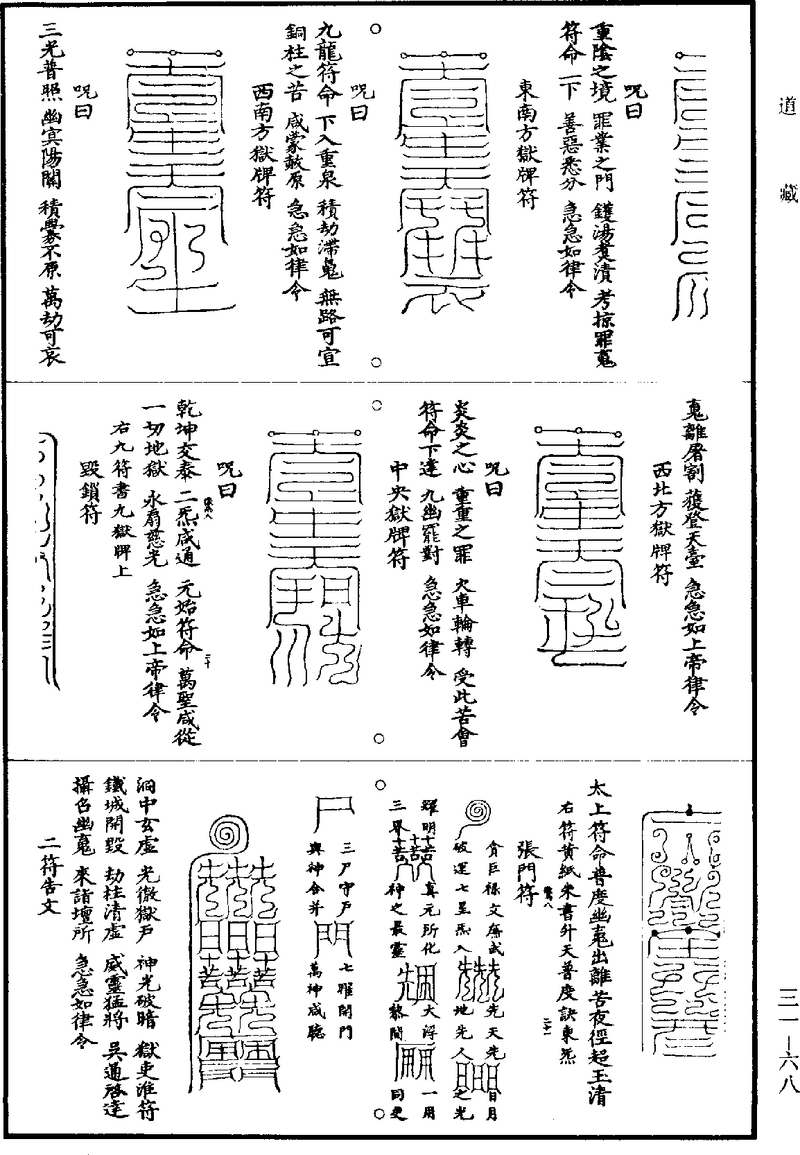 道藏
三一—六八
咒曰
重陰之境 罪業之門 鑊湯煑漬 考掠罪䰟
符命一下 善惡悉分 急急如律令
東南方獄牌符
咒曰
九龍符命 下入重泉 積劫滯䰟 無路可宣
銅柱之苦 咸蒙赦原 急急如律令
西南方獄牌符
咒曰
三光普照 幽冥陽關 積釁不原 萬劫可哀
䰟離屠割 獲登天臺 急急如上帝律令
西北方獄牌符
咒曰
炎炎之心 重重之罪 火車輪轉 受此苦會
符命下達 九幽罷對 急急如律令
中央獄牌符
咒曰
乾坤交泰 二炁咸通 元始符命 萬聖咸從
一切地獄 永爲慈光 急急如上帝律令
右九符書九獄牌上
毀鎖符
太上符命普度幽䰟出離苦夜徑超玉清
右符黄紙朱書外天普度訣東炁
張門符
貪巨祿文廉武
破運七星炁入
先天先
地先人
日月
之光
耀明
真元所化
大淂
一用
三界
神之最靈
黎開
同更
三尸守戶
與神合并
七耀開門
萬神咸聽
洞中玄虛 光徹獄戶 神光破暗 獄吏准符
鐵城開毀 劫柱清虛 威靈猛將 吳通啓達
攝召幽䰟 來詣壇所 急急如律令
二符告文